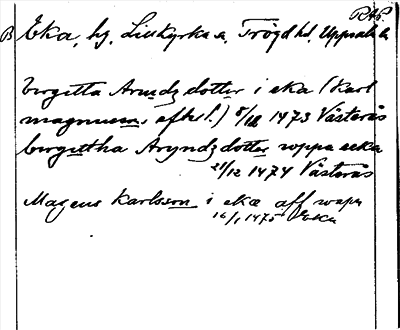 RAP.
B Eka, by, Lillkyrka s. Trögd hd, Uppsala l.
birgitta Arendz dotter i eka (karl
magnussons efterl.) 8/12 1473 Västerås
birgittha Aryndz dotter uppa eeka
21/12 1474 Västerås
Magnus karlsson i eka aff wapn
16/1 1475 Eka